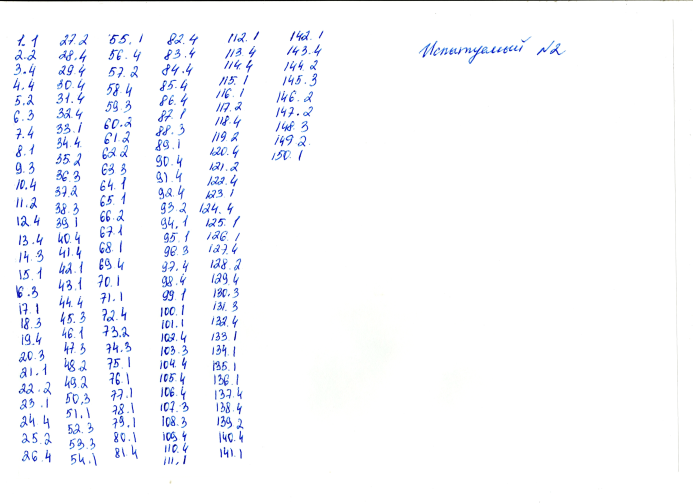 1.1
2.2
3.4
4.4
5.2
6.3
7.4
8.1
9.3
10.4
11.2
12.4
13.4
14.3
15.1
16.3
17.1
18.3
19.4
20.3
21.1
22.2
23.1
24.4
25.2
26.4
27.2
28.4
29.4
30.4
31.4
32.4
33.1
34.4
35.2
36.3
37.2
38.3
39.1
40.4
41.4
42.1
43.1
44.4
45.3
46.1
47.3
48.2
49.2
50.3
51.1
52.3
53.3
54.1
55.1
56.4
57.2
58.4
59.3
60.2
61.2
62.2
63.3
64.1
65.1
66.2
67.1
68.1
69.4
70.1
71.1
72.4
73.2
74.3
75.1
76.1
77.1
78.1
79.1
80.1
81.4
82.4
83.4
84.4
85.4
86.4
87.1
88.3
89.1
90.4
91.4
92.4
93.2
94.1
95.1
96.3
97.4
98.4
99.1
100.1
101.1
102.4
103.3
104.4
105.4
106.4
107.3
108.3
109.4
110.4
111.1
112.1
113.4
114.4
115.1
116.1
117.2
118.4
119.2
120.4
121.2
122.4
123.1
124.4
125.1
126.1
127.4
128.2
129.4
130.3
131.3
132.4
133.1
134.1
135.1
136.1
137.4
138.4
139.2
140.4
141.1
142.1
143.4
144.2
145.3
146.2
147.2
148.3
149.2.
150.1
Испытуемый №2